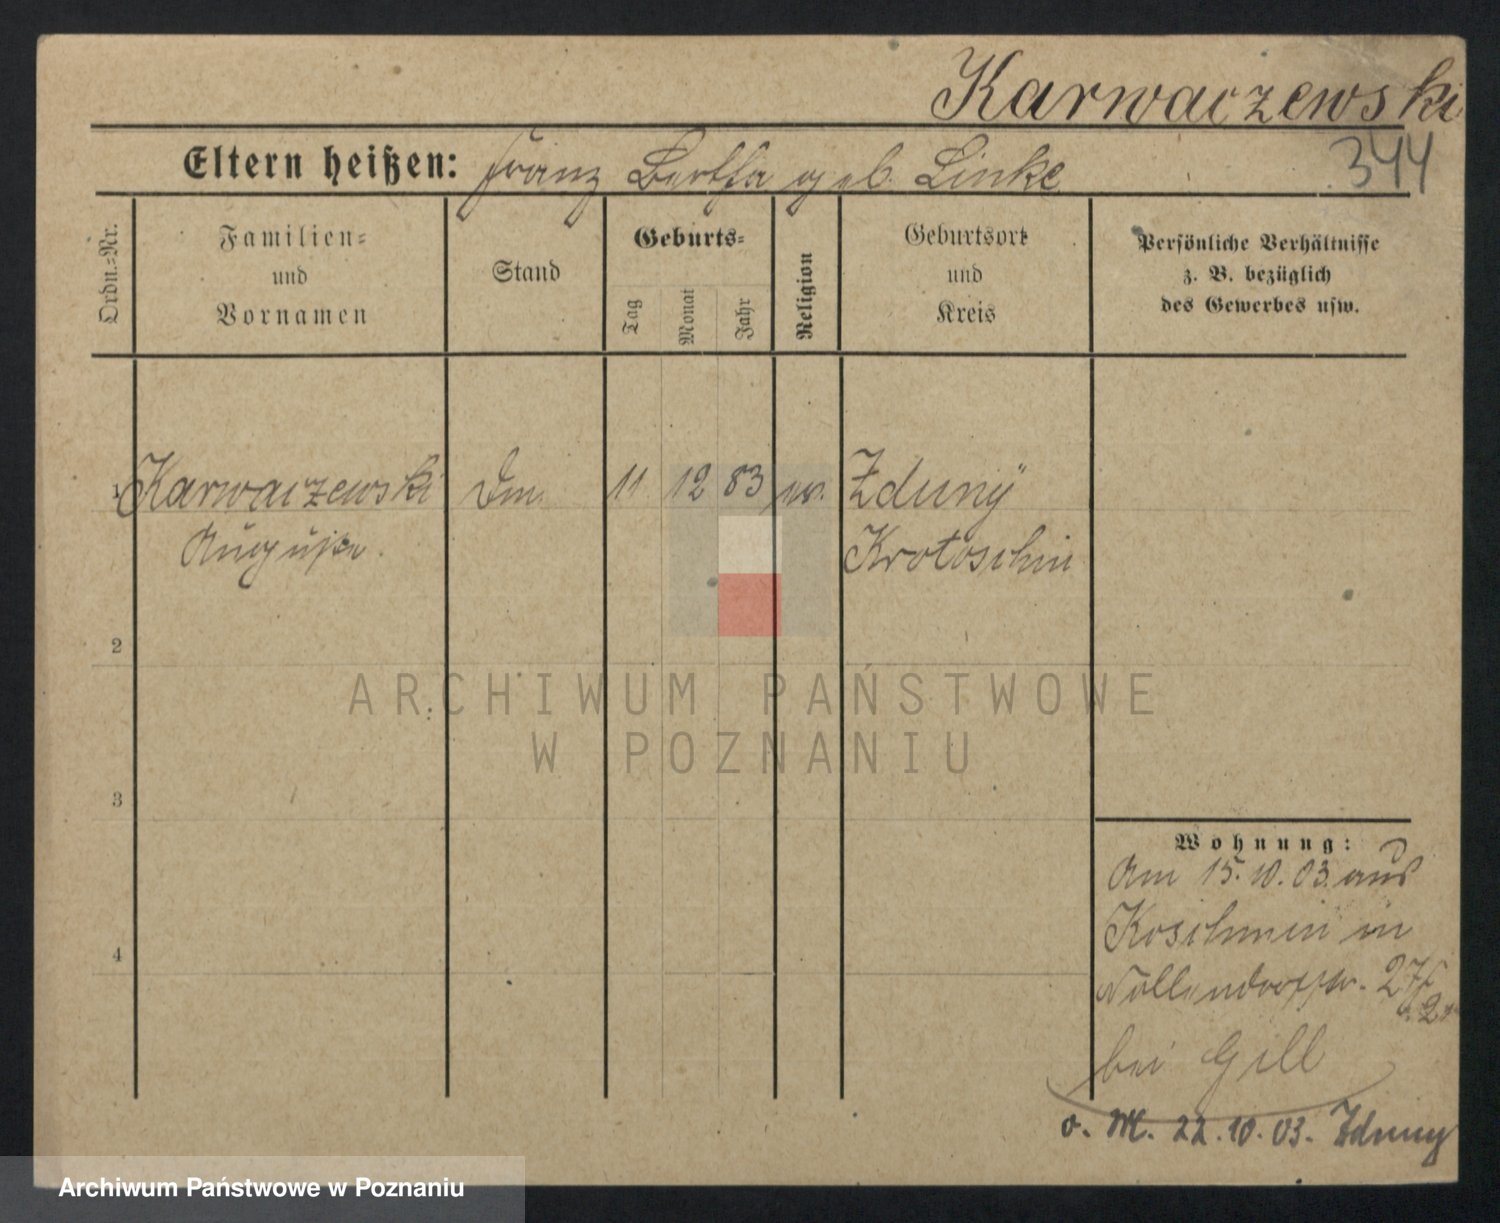 Karwaczewski
344
Eltern heißen: Franz Bertha geb. Linke
Ordn.-Nr.
Familien- und Vornamen
Stand
Geburts-
Tag
Monat
Jahr
Religion
Geburtsort und Kreis
Persönliche Verhältnisse
z. B. bezüglich
des Gewerbes usw.
1 Karwaczewski 11 12 83 Zduny
Auguste Krotoschin
2
3
4
Wohnung:
Am 15.10.03. aus
Koschmin in
Nollendorfstr. 27
bei Gill
o. M. 22.10.03. Zduny
ARCHIWUM PAŃSTWOWE
W POZNANIU
Archiwum Państwowe w Poznaniu